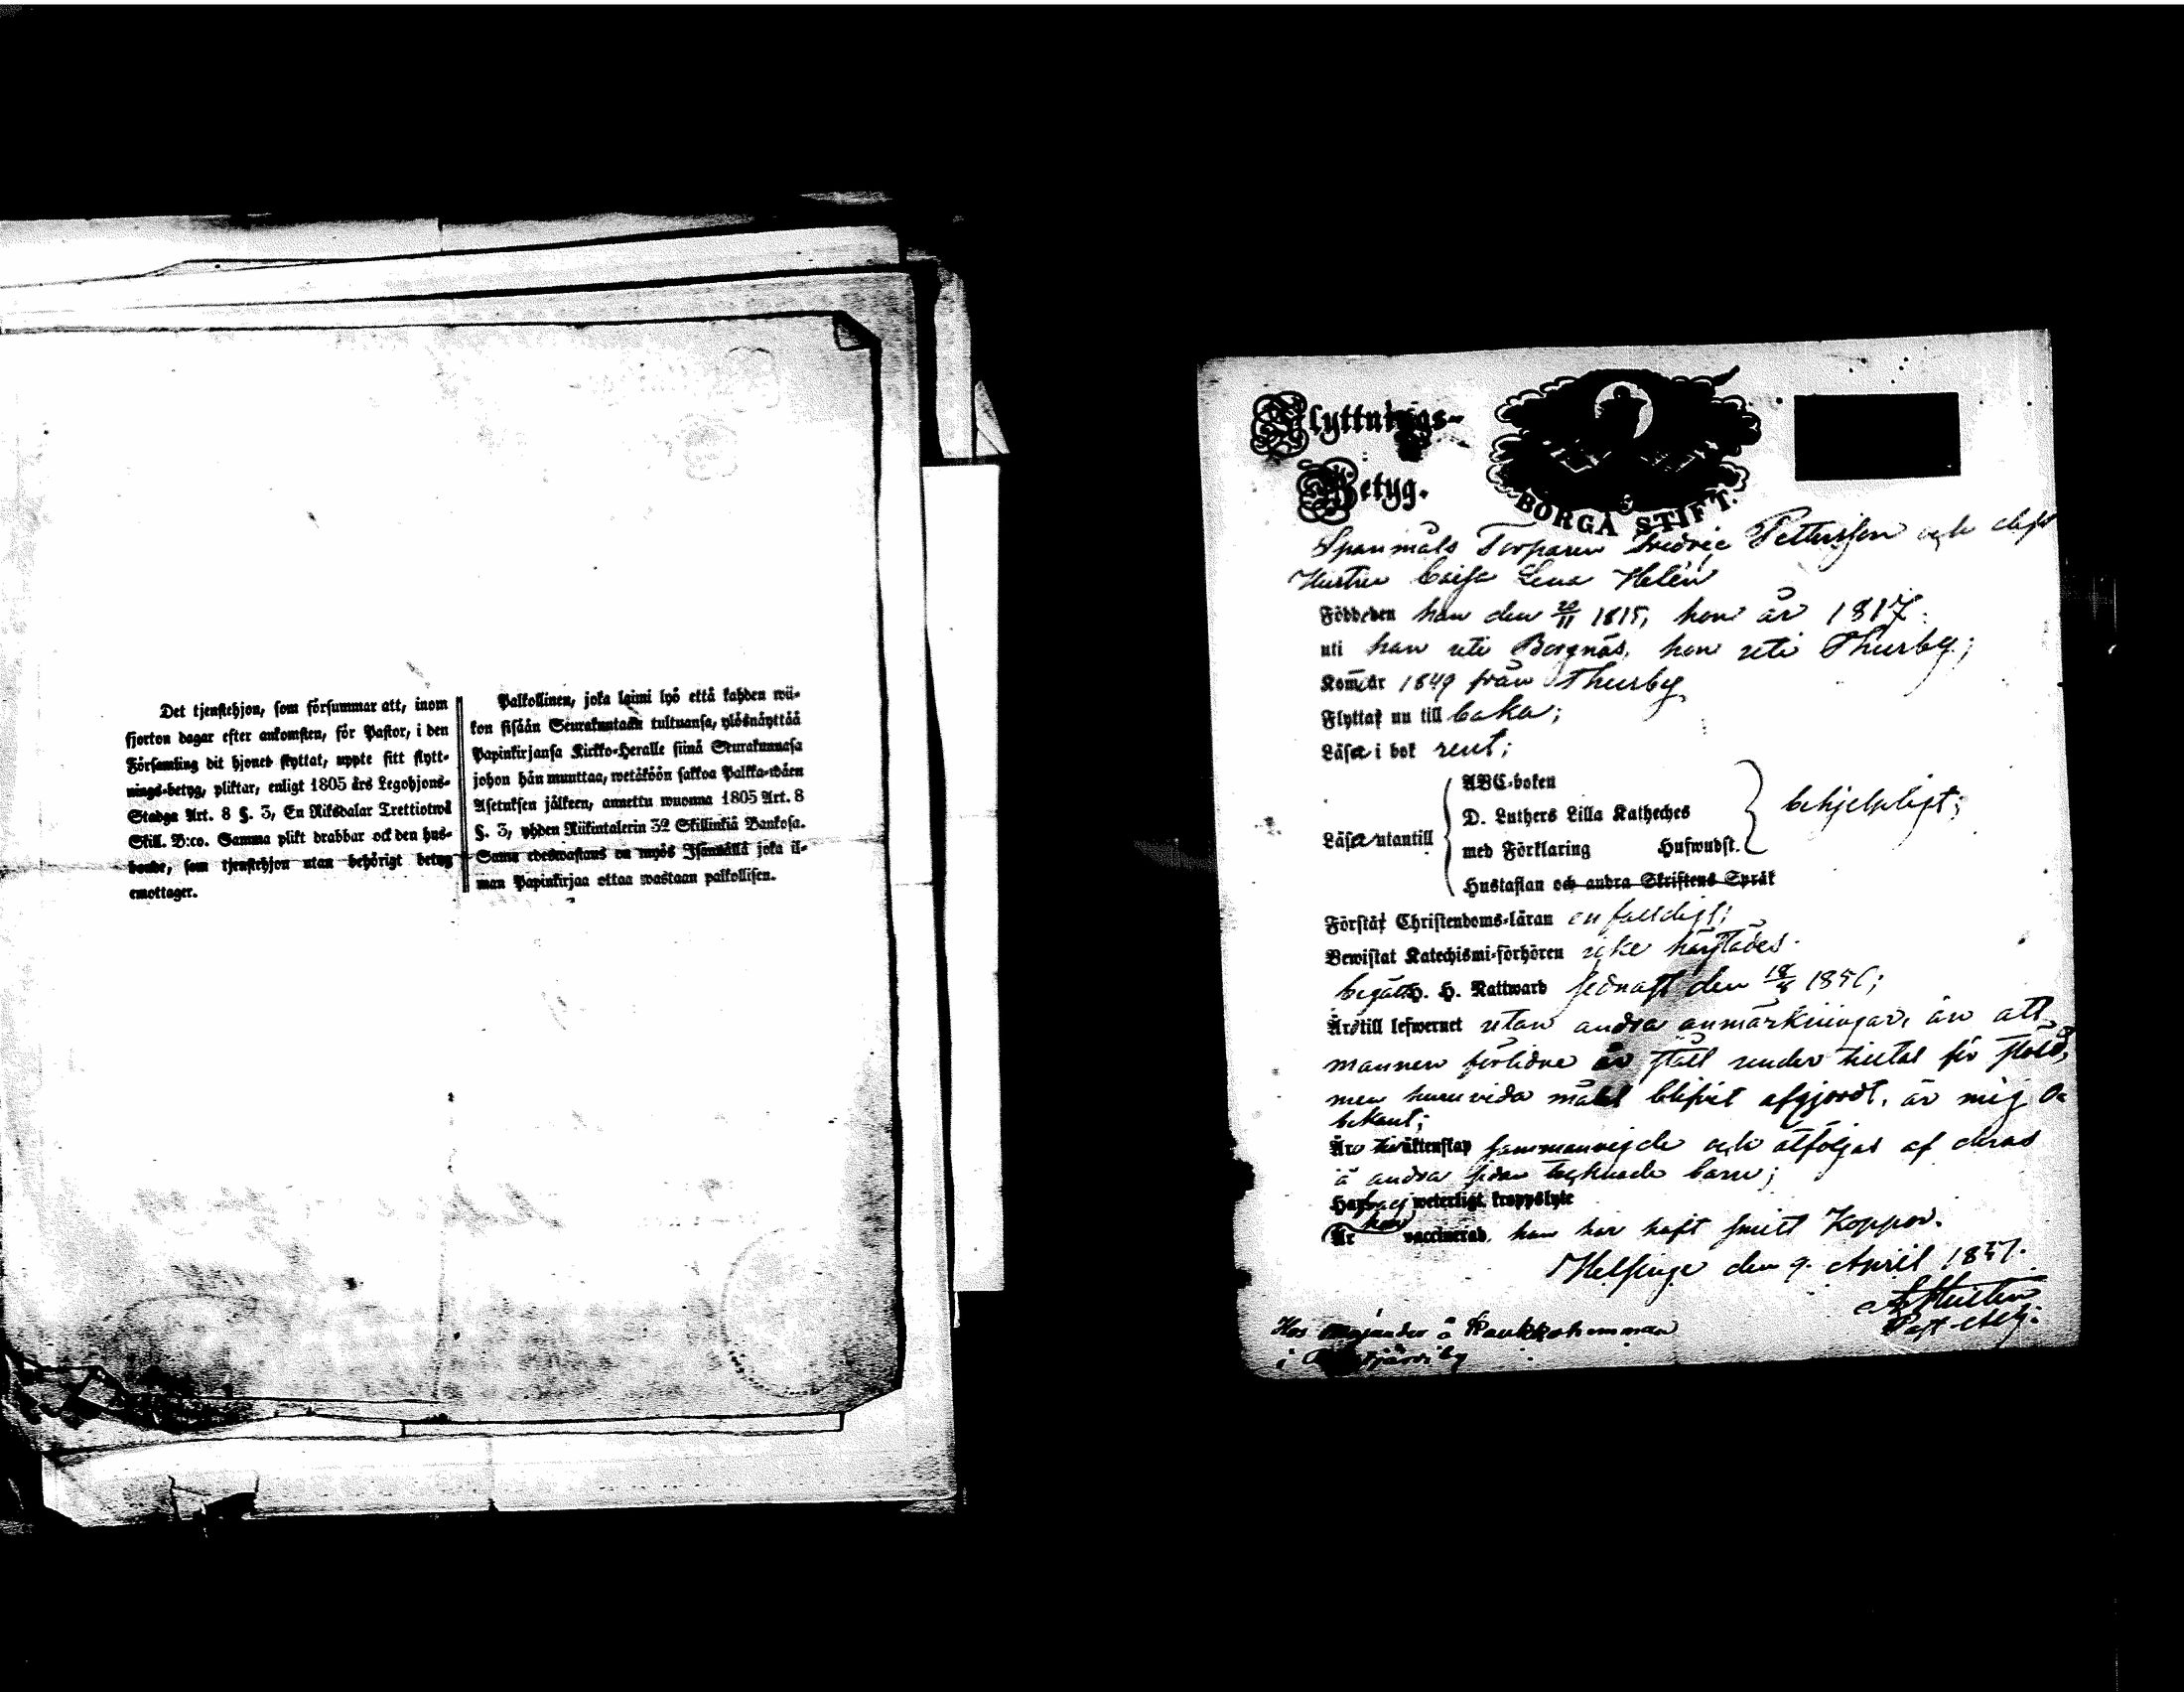 Det tjenstehjon, som försummar att, inom
fjorton dagar efter ankomsten, för Pastor, i den
Församling dit hjonet flyttat, uppte sitt flytt-
nings-betyg, pliktar, enligt 1805 års Legohjons-
Stadga Art. 8 §. 3, En Riksdalar Trettiotwå
Skill. B:co. Samma plikt drabbar ock den hus-
bonde, som tjenstehjon utan behörigt betyg
emottager.
Palkollinen, joka laimi lyö että kahden wii-
kon sisään Seurakuntaan tultuansa, ylösnäyttää
Papinkirjansa Kirkko-Heralle siinä Seurakunnasa
johon hän munttaa, wetäköön sakkoa Palkka-wäen
Asetuksen jälkeen, annettu wuonna 1805 Art. 8
§. 3, yhden Riikintalerin 32 Skillinkiä Bankosa.
Sama edeswastaus on myös Isännällä joka il-
man Papinkirjaa ottaa wastaan palkollisen.
Flyttnings-
Betyg.
BORGÅ STIFT.
Spanmåls Torparen Fredric Pettersson och dess
Hustru Caisa Lena Helén
Född den han den 20/11 1815, hon år 1817.
uti han uti Borgnäs, hon uti Thurby;
Kom år 1849 från Thurby
Flytta nu till baka;
Läsa i bok rent;
Läsa utantill
ABC-boken
D. Luthers Lilla Katheches
med Förklaring Hufwudst.
Hustaflan och andra Skriftens Språk
behjelpligt;
Förstå Christendoms-läran enfaldigt;
Bewistat Katechismi-förhören icke härstädes.
begått H. H. Nattward sednast den 1856;
Äro till lefwernet utan andra anmärkningar, än att
mannen förlidne år stått under tilltal för stöld,
men huruvida målet blifvit afgjordt, är mig o-
bekant;
Äro äktenskap sammanvigde och åtföljas af deras
å andra sidan tecknade barn;
Hafva ej weterligt kroppslyte
Är hon vaccinerad, han har haft smitt Koppor.
Helsinge den 9. April 1857.
Past. Adj.
Hos å Kaukkohemman
i